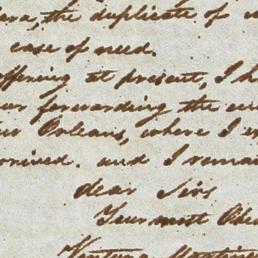 the duplicate of
case of need.
offering at present, I
forwarding the
Orleans, where I
and I remain
dear Sirs
Your most
Ventura